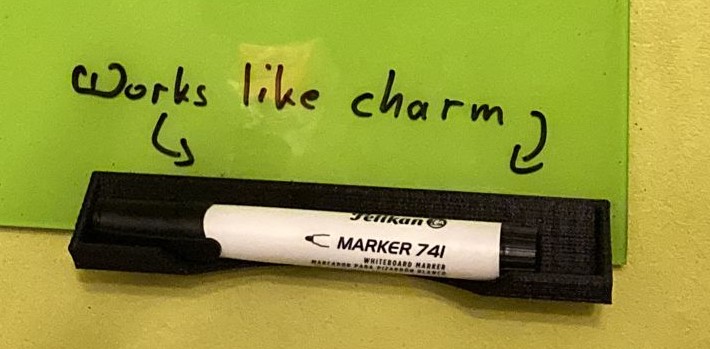 Works like charm
Pelikan
MARKER 741
WHITEBOARD MARKER
MARCADOR PARA PIZARRÓN BLANCO